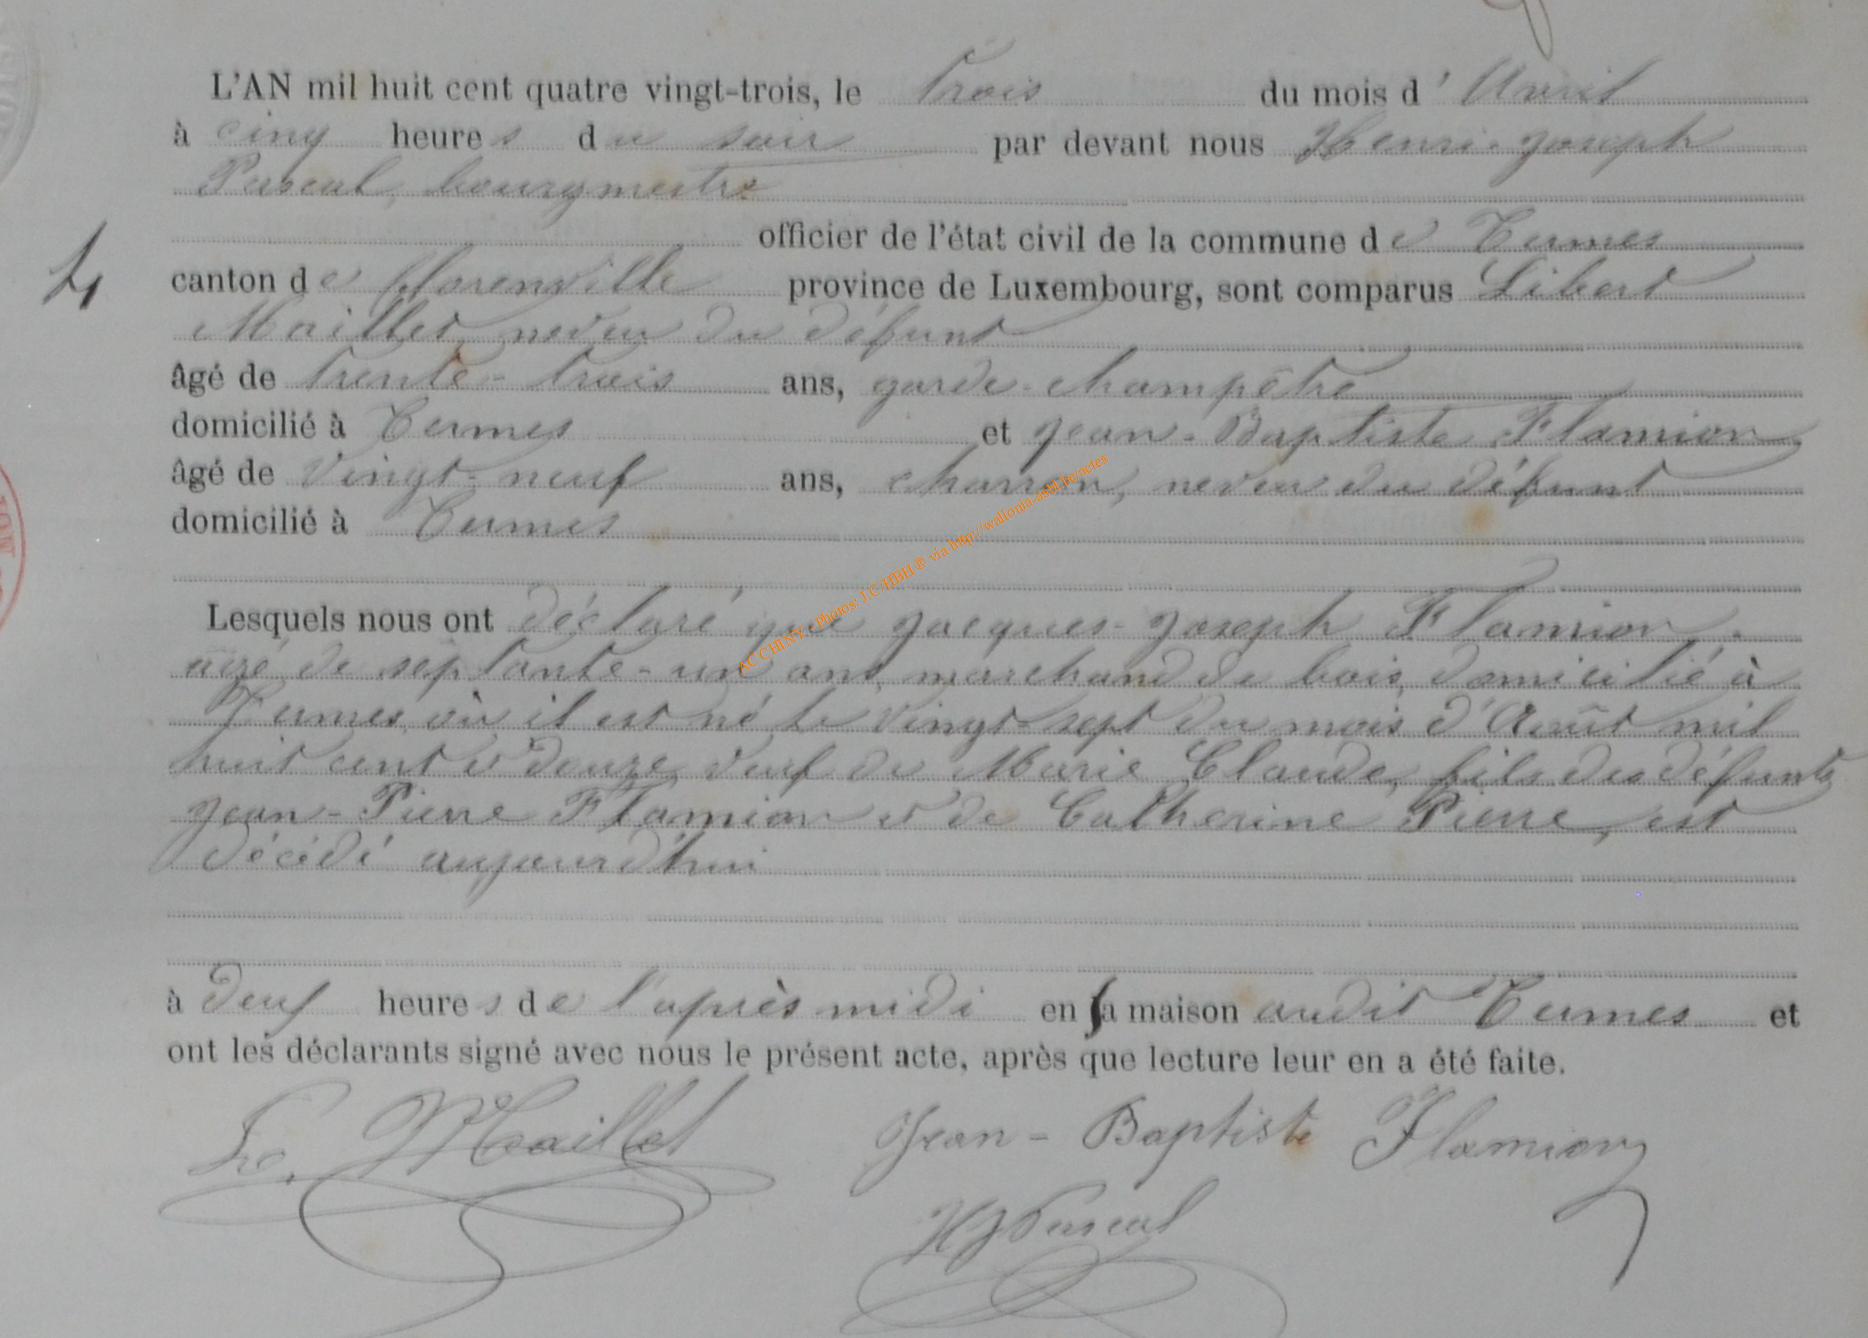 L'AN mil huit cent quatre vingt-trois, le trois du mois d'Avril
à cinq heures du soir par devant nous Henri-Joseph
Pascal, bourgmestre
officier de l'état civil de la commune de Termes
4
canton de Florenville province de Luxembourg, sont comparus Libert
Maillet, neveu du défunt
âgé de trente-trois ans, garde-champêtre
domicilié à Termes et Jean-Baptiste Flamion,
âgé de vingt-neuf ans, charron, neveu du défunt
domicilié à Termes
AC CHINY - Photos: J.C. HBH ® via http://wallonia-asbl.be/actes
Lesquels nous ont déclaré que Jacques-Joseph Flamion,
agé de septante-un ans, marchand de bois, domicilié à
Termes, où il est né le vingt-sept du mois d'Août mil
huit cent et douze, veuf de Marie Claude, fils des défunts
Jean-Pierre Flamion et de Catherine Pierre, est
décédé aujourd'hui
à deux heures de l'après midi en sa maison audit Termes et
ont les déclarants signé avec nous le présent acte, après que lecture leur en a été faite.
L. Maillet Jean-Baptiste Flamion
HJ Pascal